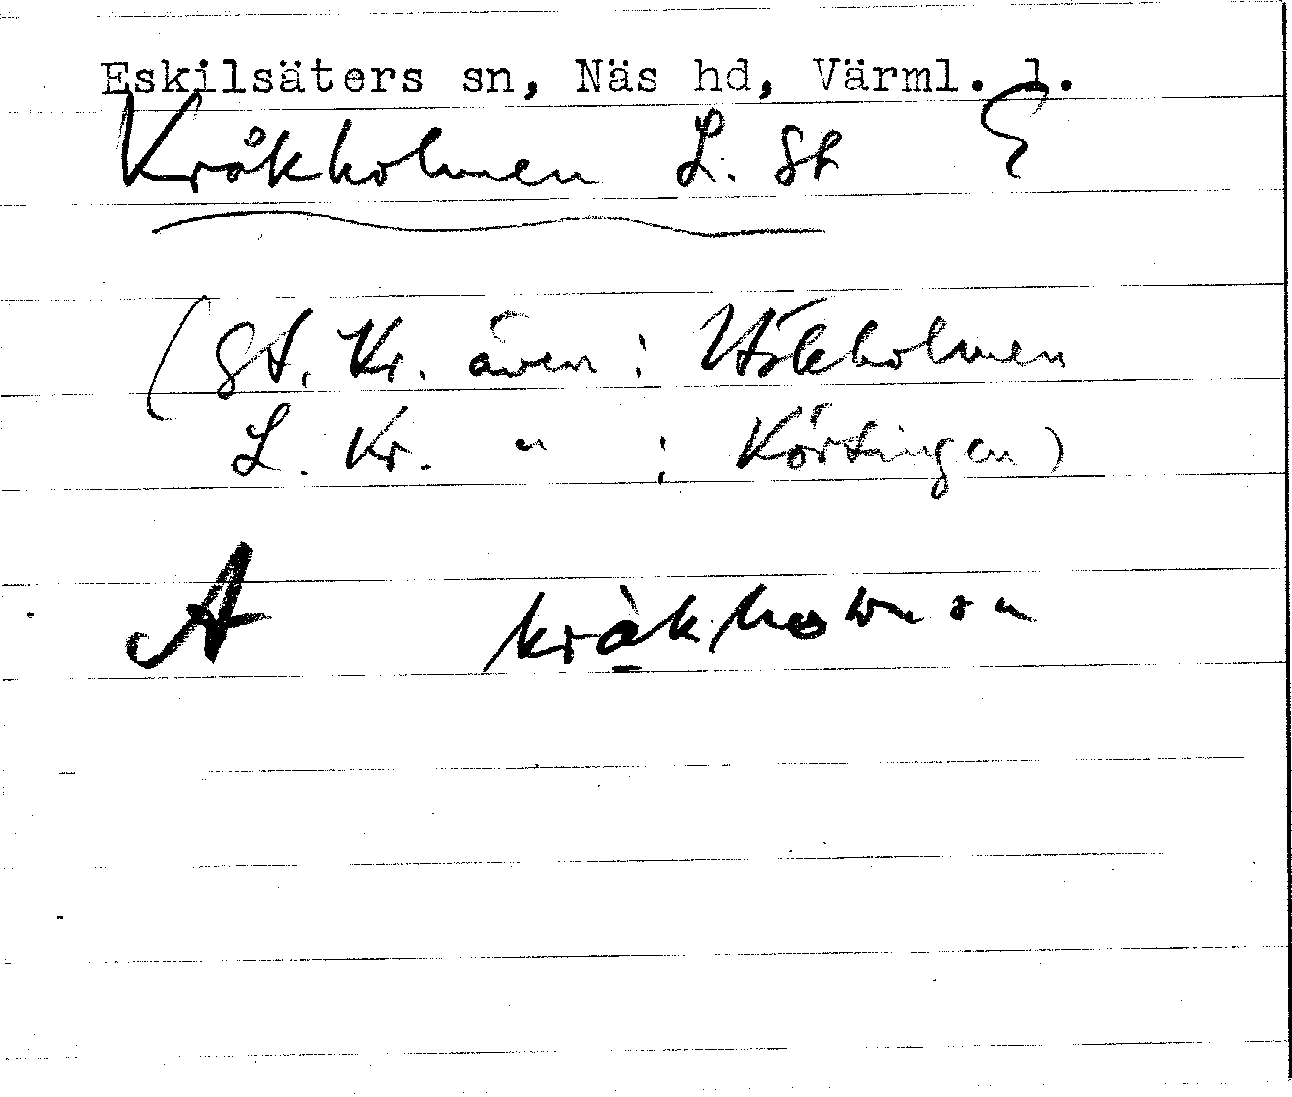 Eskilsäters sn, Näs hd, Värml. l.
Kråkholmen L. St E
(St. Kr. även: Utökholmen
L. Kr. " : Körtingen)
A kråkhowmən